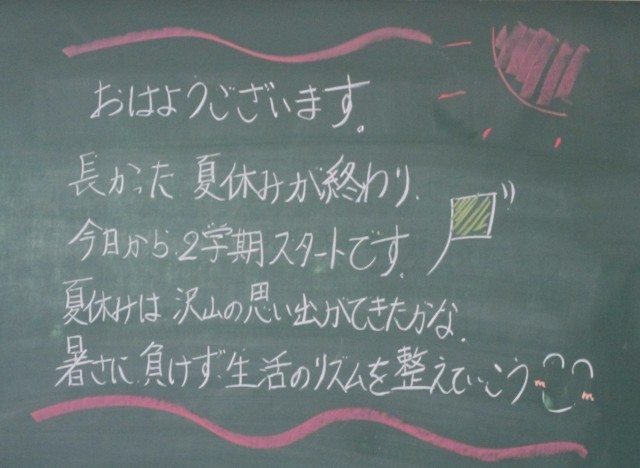 おはようございます。
長かった夏休みが終わり、
今日から2学期スタートです。
夏休みは沢山の思い出ができたかな。
暑さに負けず生活のリズムを整えていこう